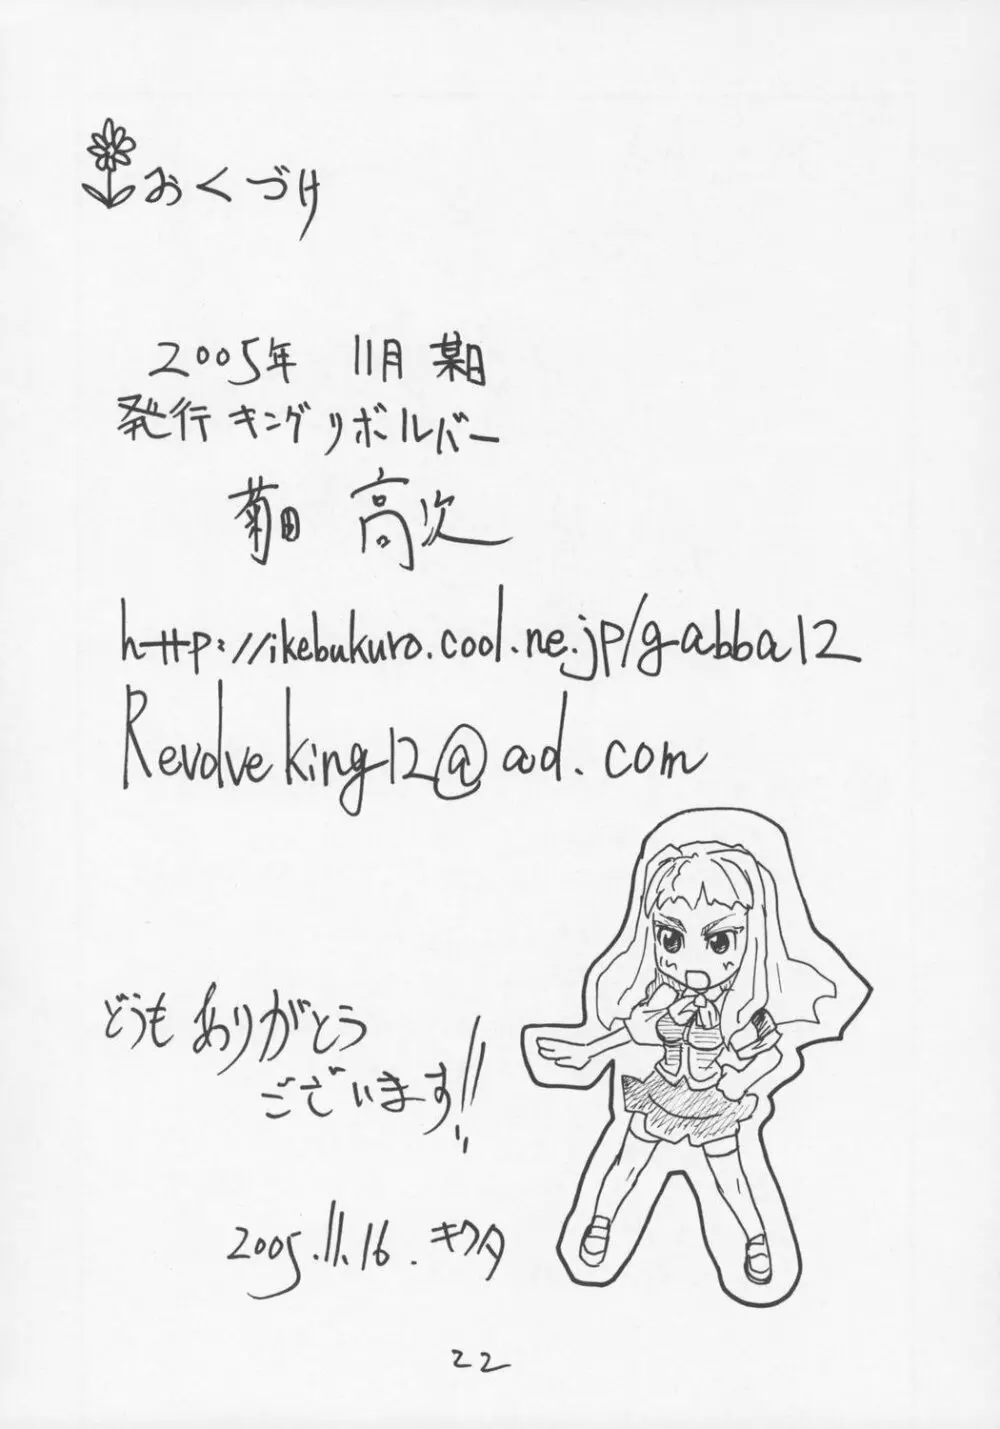 おくづけ
2005年 11月 某日
発行 キングリボルバー
菊田 高次
http://ikebukuro.cool.ne.jp/gabba12
Revolveking12@aol.com
どうも ありがとう
ございます!!
2005.11.16. キクタ
22